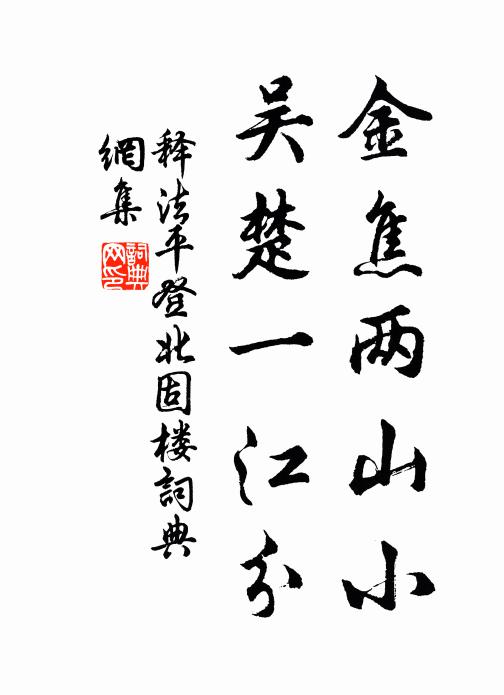 金焦两山小
吴楚一江分
释法平登北固楼词典
网集
词典
网印